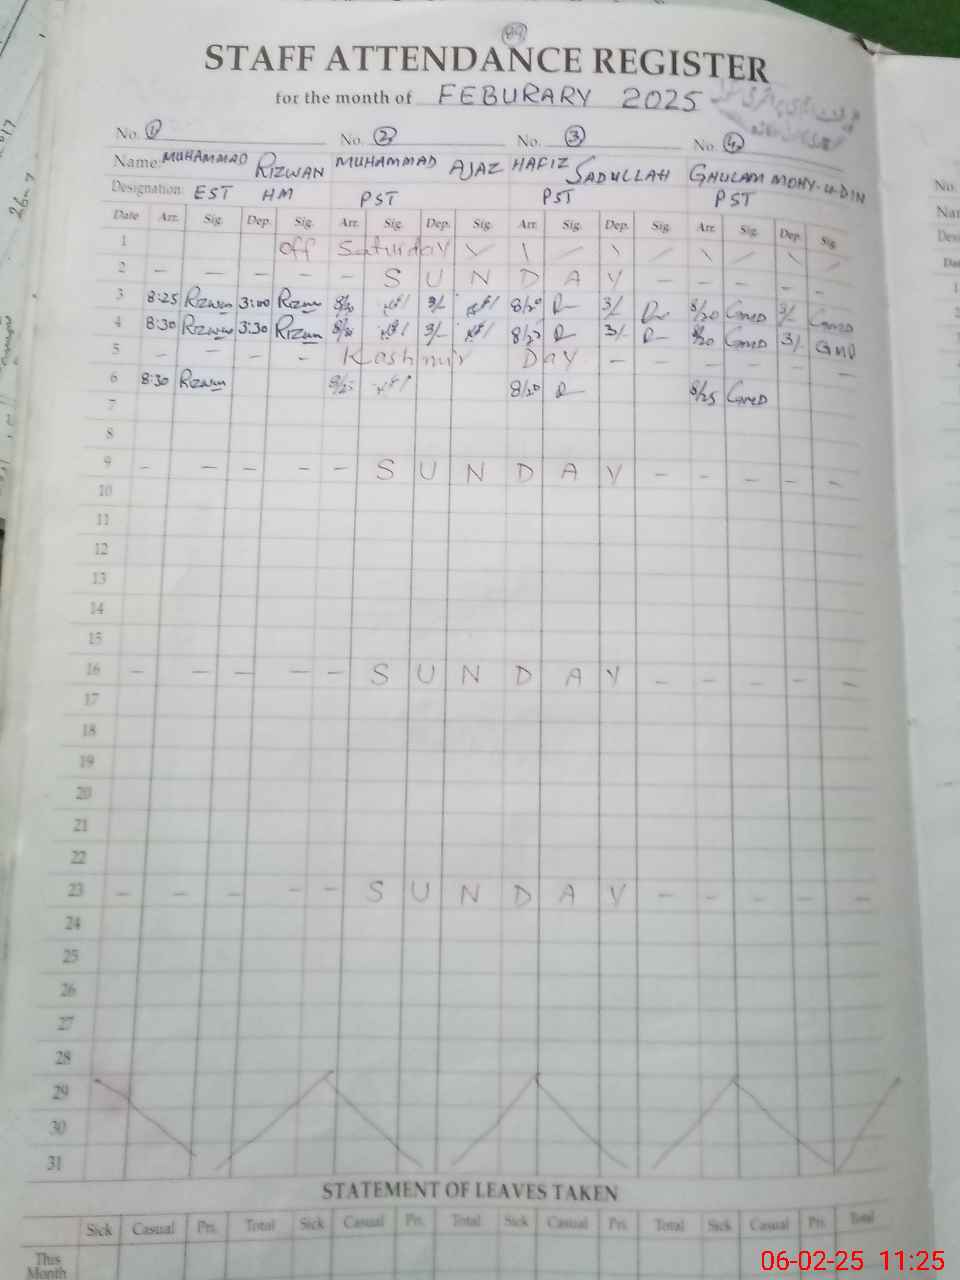 89
STAFF ATTENDANCE REGISTER
for the month of FEBURARY 2025
No. 1 No. 2 No. 3 No. 4
Name: MUHAMMAD RIZWAN MUHAMMAD AJAZ HAFIZ SADULLAH GHULAM MOHY-U-DIN
Designation: EST HM PST PST PST
Date Arr. Sig. Dep. Sig. Arr. Sig. Dep. Sig. Arr. Sig. Dep. Sig. Arr. Sig. Dep. Sig.
1 Off Saturday
2 — — — — — S U N D A Y — — — — —
3 8:25 Rizwan 3:00 Rizwan 8/20 3/- 8/20 3/- 8/20 GMD 3/- GMD
4 8:30 Rizwan 3:30 Rizwan 8/20 3/- 8/20 3/- 8/20 GMD 3/- GMD
5 — — — — Kashmir Day — — — — — —
6 8:30 Rizwan 8/20 8/25 GMD
7
8
9 — — — — — S U N D A Y — — — — —
10
11
12
13
14
15
16 — — — — — S U N D A Y — — — — —
17
18
19
20
21
22
23 — — — — — S U N D A Y — — — — —
24
25
26
27
28
29
30
31
STATEMENT OF LEAVES TAKEN
Sick Casual Pri. Total Sick Casual Pri. Total Sick Casual Pri. Total Sick Casual Pri. Total
This
Month
06-02-25 11:25